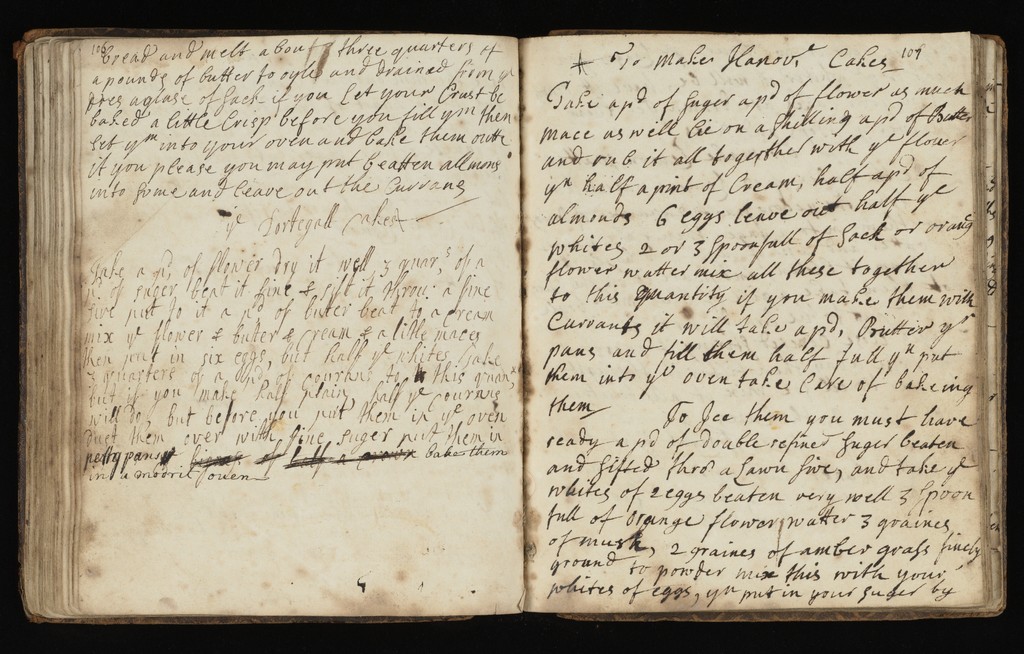 108
bread and melt about three quarters of
a pounde of butter to oyle and drained from ye
dres a glase of sack if you let your Crust be
baked a little Crisp before you fill ym then
set ym into your oven and bake them oute
if you please you may put beatten allmons
into some and leave out the Currans
ye Portegall cakes
Take a pd of flower dry it well 3 quars of a
pd of suger beat it fine & sift it throw a fine
sive put to it a pd of buter beat to a cream
mix ye flower & buter & cream & a litle maces
then put in six eggs, but half ye whites, take
3 quarters of a pd of courans to this quan
but if you make half plain, half ye courans
will do, but before you put them in ye oven
dust them over with fine suger put them in
petty pans bake them
in a moderit ouen
109
* To Make Hanovr Cakes
Take a pd of suger a pd of flower as much
mace as well lie on a shilling a pd of Butter
and rub it all together with ye flower
yn half a pint of Cream, half a pd of
almonds 6 eggs leave out half ye
whites 2 or 3 spoonfull of Sack or orang
flower watter mix all these together
to this Quantity if you make them with
Currants it will take a pd, Buttir yr
pans and fill them half full yn put
them into ye oven take Care of bakeing
them To Jce them you must have
ready a pd of double refined suger beaten
and sifted thro a Lawn sive, and take ye
whites of 2 eggs beaten very well 3 spoon
full of Orange flower watter 3 graines
of musk, 2 graines of amber grass finely
ground to powder mix this with your
whites of eggs, yn put in your suger by